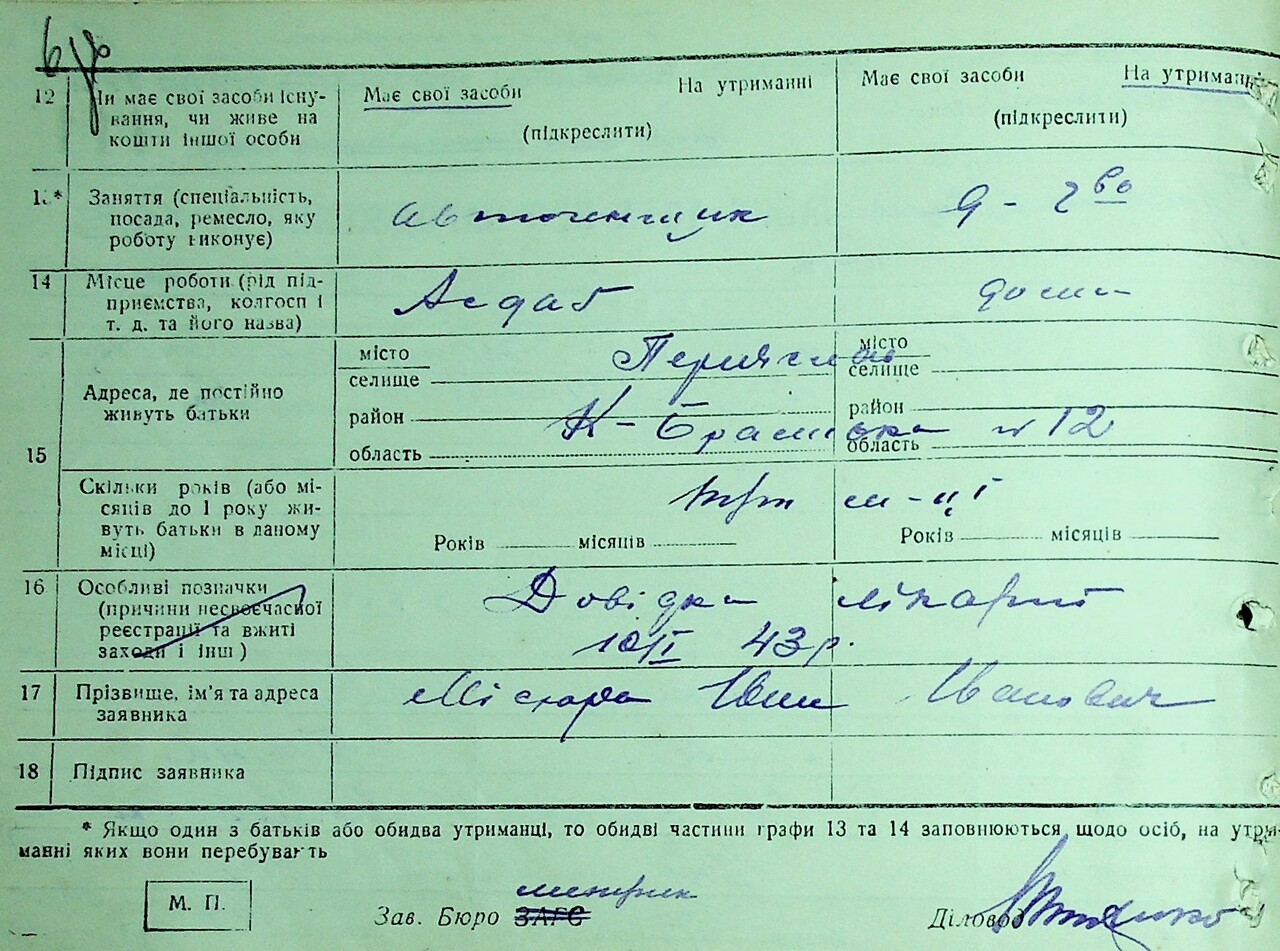 12 Чи має свої засоби існу- Має свої засоби На утриманні Має свої засоби На утриманні
вання, чи живе на (підкреслити) (підкреслити)
кошти іншої особи
13* Заняття (спеціальність,
посада, ремесло, яку
роботу виконує)
14 Місце роботи (рід під- Асдаб дома
приємства, колгосп і
т. д. та його назва)
15 Адреса, де постійно живуть батьки
місто Переяслав місто
селище селище
район К-Братська № 12 район
область область
Скільки років (або мі- три м-ці
сяців до 1 року жи-
вуть батьки в даному Років місяців Років місяців
місці)
16 Особливі позначки Довідка лікарні
(причини несвоєчасної 10/I 43 р.
реєстрації та вжиті
заходи і інш)
17 Прізвище, ім'я та адреса Іван Іванович
заявника
18 Підпис заявника
* Якщо один з батьків або обидва утриманці, то обидві частини графи 13 та 14 заповнюються щодо осіб, на утри-
манні яких вони перебувать
М. П. Зав. Бюро ЗАГС метрик Діловод